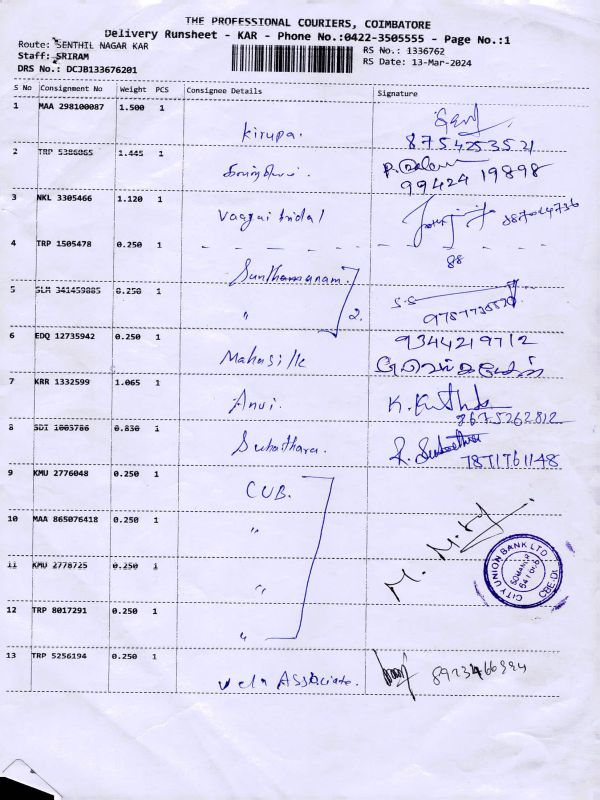 THE PROFESSIONAL COURIERS, COIMBATORE
Delivery Runsheet - KAR - Phone No.:0422-3505555 - Page No.:1
Route: SENTHIL NAGAR KAR
RS No.: 1336762
Staff: SRIRAM
RS Date: 13-Mar-2024
DRS No.: DCJB133676201
S No Consignment No Weight PCS Consignee Details Signature
1 MAA 298100087 1.500 1
Kirupa.
8754253521
2 TRP 5386065 1.445 1
99424 19898
3 NKL 3305466 1.120 1
Vaagai bridal
4 TRP 1505478 0.250 1
88
5 SLM 341459885 0.250 1
" 2. S.S
6 EDQ 12735942 0.250 1
9344219712
Mahasilk
7 KRR 1332599 1.065 1
Anvi. K.
8 SDI 1003786 0.830 1
9 KMU 2776048 0.250 1
CUB.
10 MAA 865076418 0.250 1
"
11 KMU 2778725 0.250 1
"
CITY UNION BANK LTD
12 TRP 8017291 0.250 1
"
13 TRP 5256194 0.250 1
Vela Associate.